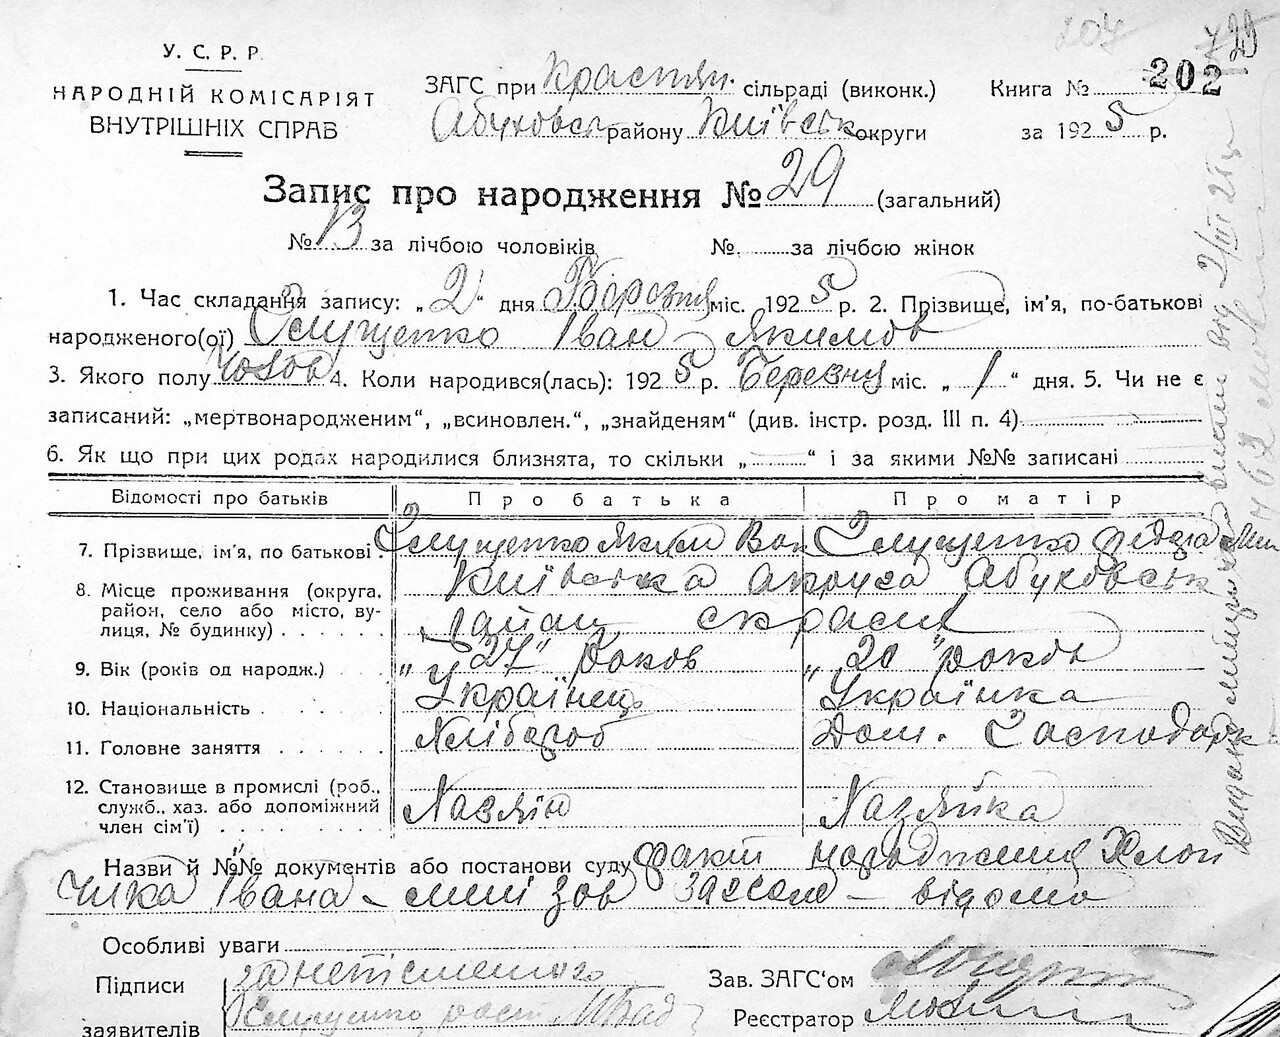 У. С. Р. Р.
НАРОДНІЙ КОМІСАРІЯТ
ВНУТРІШНІХ СПРАВ
ЗАГС при Красная сільраді (виконк.)
Абуховськ району Київськ округи
Книга № 202
за 1925 р.
Запис про народження № 29 (загальний)
№ 13 за лічбою чоловіків № за лічбою жінок
1. Час складання запису: „2" дня Березня міс. 1925 р. 2. Прізвище, ім'я, по-батькові
народженого(ої) Іван Якимов
3. Якого полу Чолов 4. Коли народився(лась): 1925 р. Березня міс. „1" дня. 5. Чи не є
записаний: „мертвонародженим", „всиновлен.", „знайденям" (див. інстр. розд. III п. 4)
6. Як що при цих родах народилися близнята, то скільки „ " і за якими №№ записані
Відомості про батьків Про батька Про матір
7. Прізвище, ім'я, по батькові Яким
8. Місце проживання (округа, Київська округа Абуховськ
район, село або місто, ву-
лиця, № будинку) район
9. Вік (років од народж.) „27" роков „20" роков
10. Національність Українець Українка
11. Головне заняття Хлібороб Дом. Господарк
12. Становище в промислі (роб.,
служб., хаз. або допоміжний
член сім'ї) Хазяїн Хазяйка
Назви й №№ документів або постанови суду факт народження Хлоп
чика Івана – відомо
Особливі уваги
Підписи
заявителів
Зав. ЗАГС'ом
Реєстратор